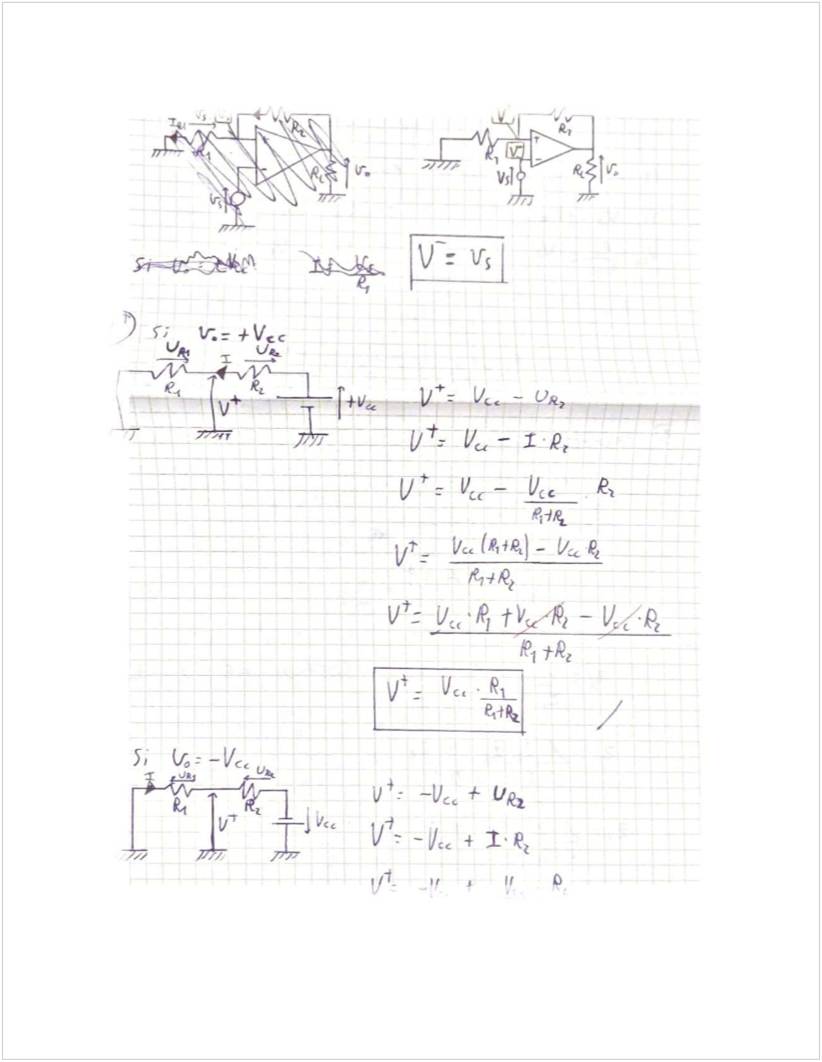 I_R1 R₁ R₂ R_L V_o
V_s
V⁻ R₁ R₂ + − V_s R_L V_o
Si V_o =
R₁
V⁻ = V_s
Si V_o = +Vcc
U_R1 I U_R2
R₁ R₂ V⁺ +Vcc
V⁺ = Vcc − U_R2
V⁺ = Vcc − I·R₂
V⁺ = Vcc − Vcc/(R₁+R₂) · R₂
V⁺ = (Vcc (R₁+R₂) − Vcc R₂)/(R₁+R₂)
V⁺ = (Vcc·R₁ + Vcc·R₂ − Vcc·R₂)/(R₁+R₂)
V⁺ = Vcc · R₁/(R₁+R₂)
Si V_o = −Vcc
I U_R1 U_R2
R₁ R₂ V⁺ Vcc
V⁺ = −Vcc + U_R2
V⁺ = −Vcc + I·R₂
V⁺ = −V +